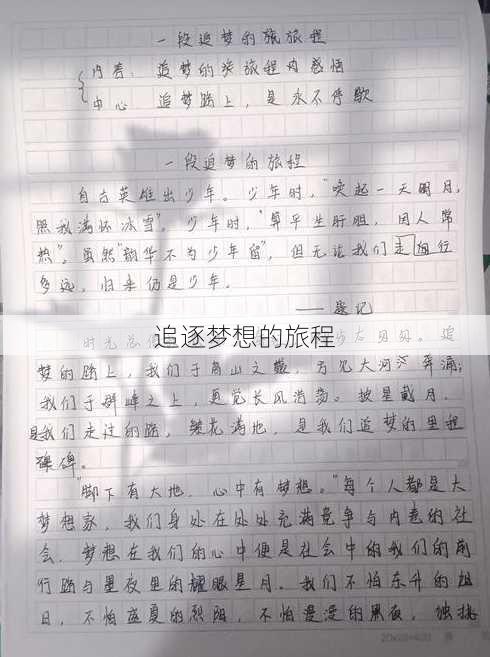 一段追梦的旅旅程
内容：追梦的旅程内感悟
中心 追梦路上，是永不停歇
一段追梦的旅程
自古英雄出少年。少年时，"唤起一天明月，
照我满怀冰雪"。少年时，"算平生肝胆，因人常
热"。虽然"韶华不为少年留"，但无论我们走向行
多远，归来仍是少年。
——题记
追逐梦想的旅程
时光总 。追
梦的路上，我们于高山之巅，方见大河 奔涌；
我们于群峰之上，更觉长风浩荡。披星戴月，
是我们走过的路，繁花满地，是我们追梦的里程
碑。
"脚下有大地，心中有梦想。"每个人都是大
梦想家，我们身处在处处充满竞争与内卷的社
会，梦想在我们的心中便是社会中的我们的前
行路与星夜里的耀眼星月。我们不怕东升的旭
日，不怕盛夏的烈阳，不怕漫漫的黑夜，独挑
20×20=400